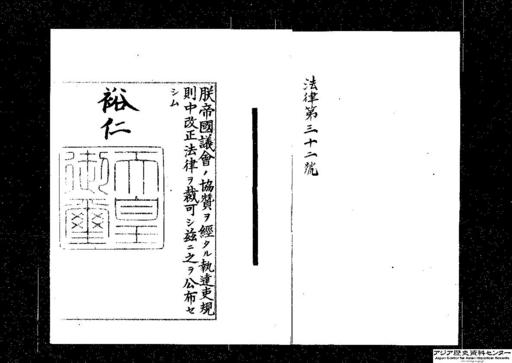 法律第三十二號
朕帝國議會ノ協贊ヲ經タル執達吏規
則中改正法律ヲ裁可シ茲ニ之ヲ公布セ
シム
裕仁
天皇
御璽
アジア歴史資料センター
Japan Center for Asian Historical Records